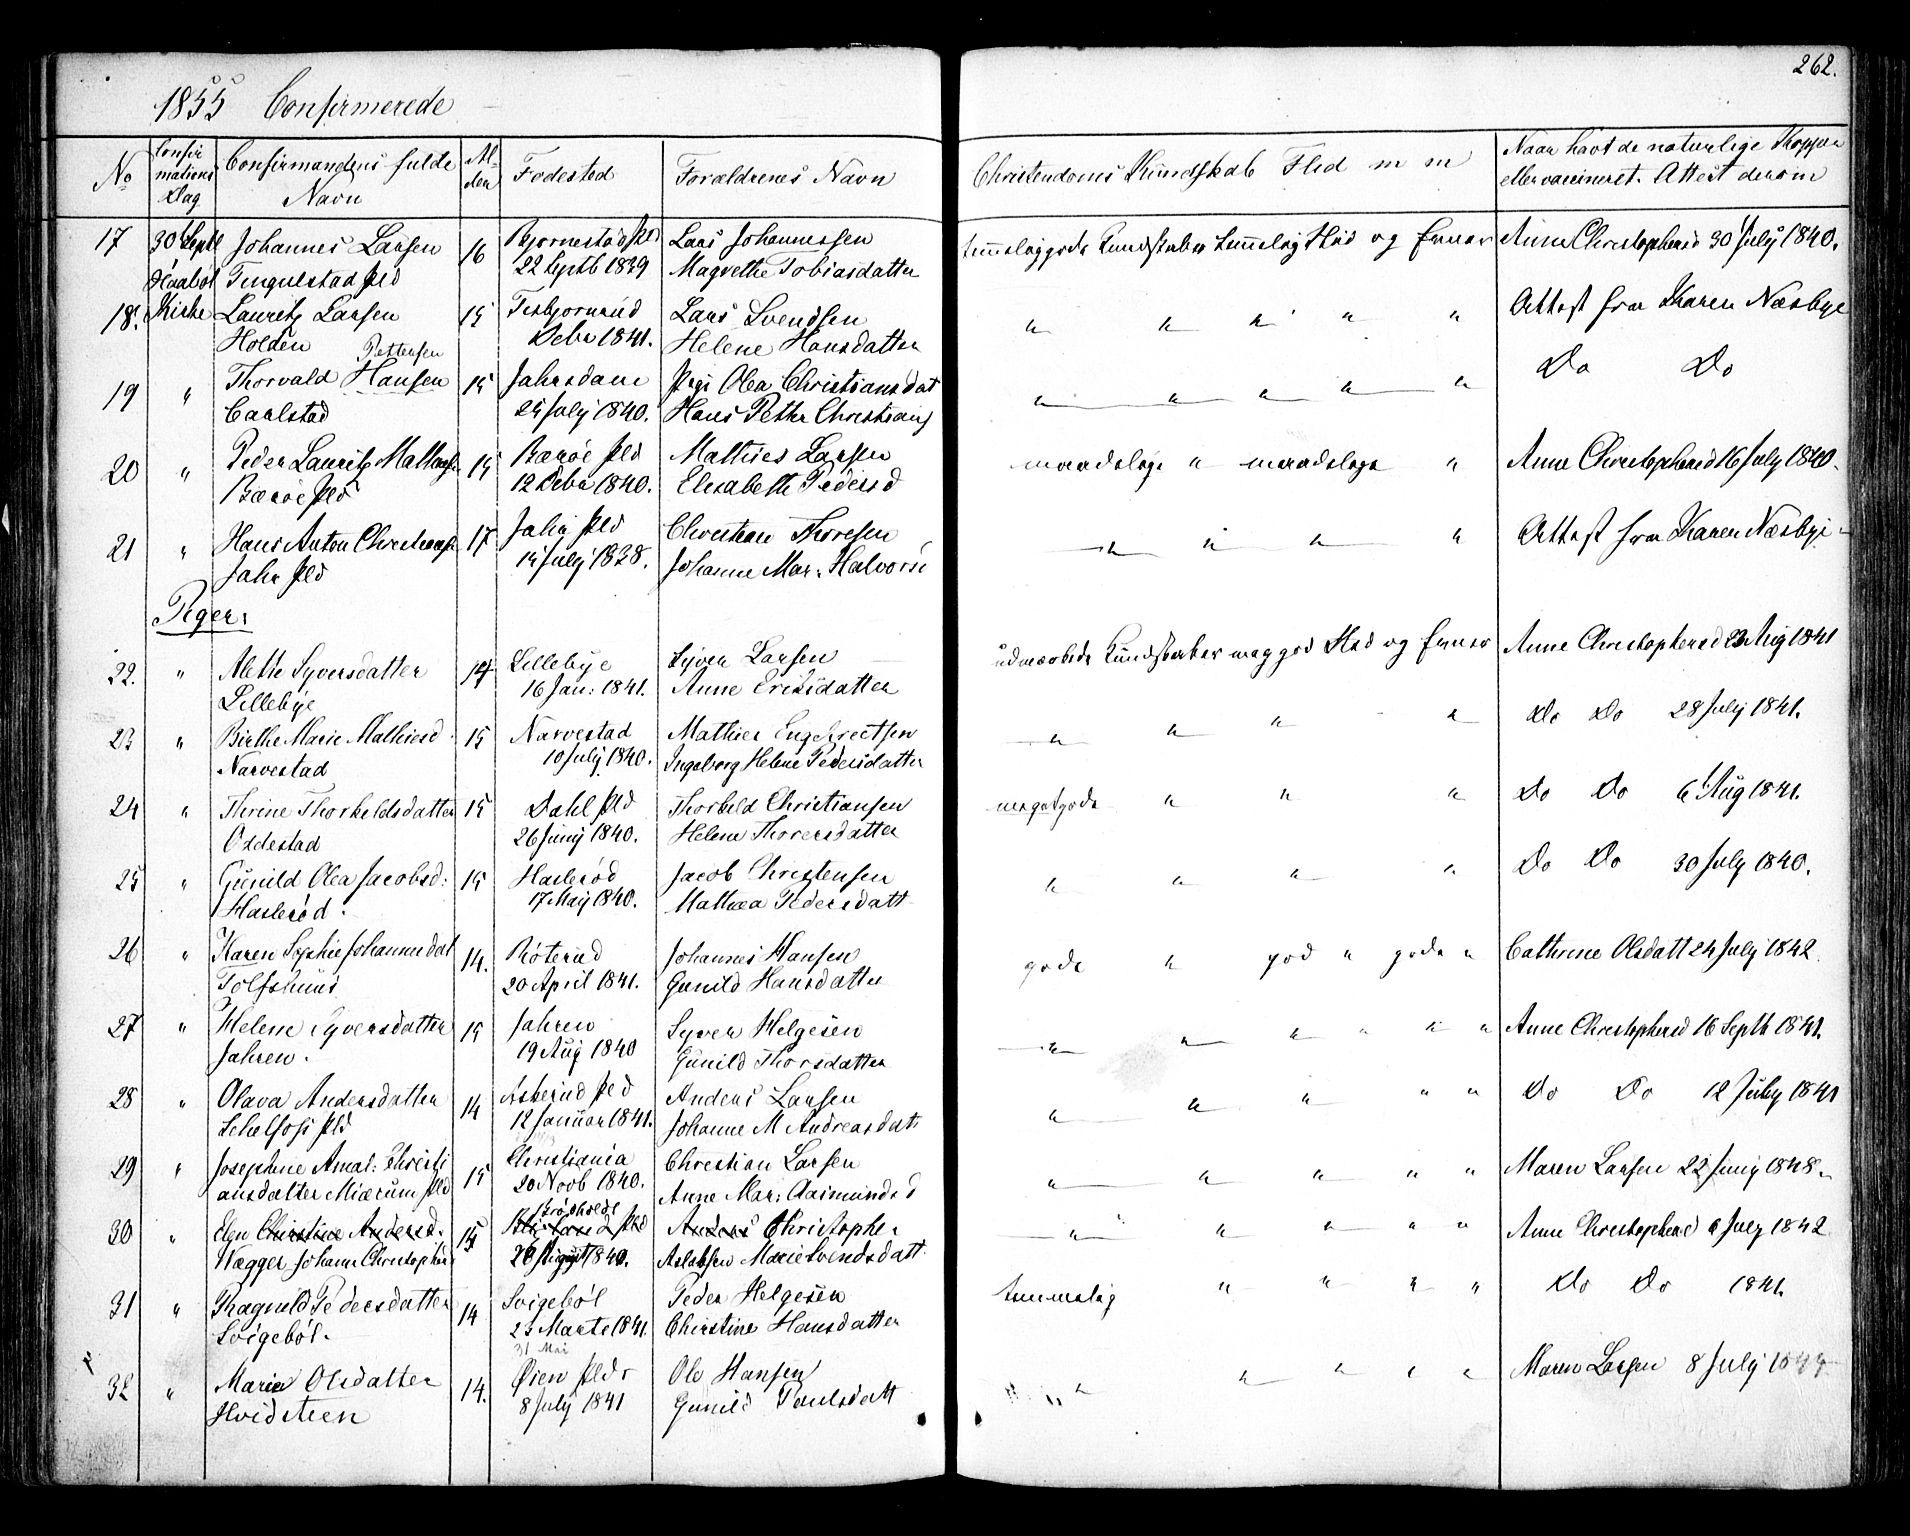 262.
1855 Confirmerede
No | Confirmations Dag | Confirmandens fulde Navn | Alder | Fødested | Forældrenes Navn | Christendoms Kundskab Flid m m | Naar havt de naturlige Kopper eller vaccineret. Attest derom
17 30 Septb Johannes Larsen 16 Bjørnestad Pld Lars Johannessen temmelig gode Kundskaber temmelig Flid og Anne Christophersd 30 July 1840.
Tingulstad Pld 22 Septb 1839 Magrethe Tobiasdatter
18. Kirke Lauritz Larsen 15 Lars Svendsen " " " " " Attest fra Karen Næsbye
Holden Debr 1841. Helene Hansdatter
Pettersen
19 " Thorvald Hansen 15 Pigi Olea Christiansdat " " " " " Do Do
Carlstad 25 July 1840. Hans Petter Christians
20 " Peder Lauritz 15 Bærøe Pld Mathies Larsen maadelige " maadelige " Anne Christophersd 16 July 1840.
Bærøe Pld 12 Debr 1840. Elisabeth Pedersd
21 " Hans Anton 17 Jahr Pld Christian Thoresen " " " " Attest fra Karen Næsbye
Jahr Pld 15 July 1838. Johanne Mar: Halvors
Piger:
22. " Alette Syversdatter 14 Lillebye Syver Larsen udmærkede Kundskaber meg god Flid og Anne Christophersd 23 Aug 1841
Lillebye 16 Jan: 1841. Anne Ericsdatter
23 " Birthe Marie Mathiesd 15 Narvestad Mathies Engebrectsen " " " " Do Do 28 July 1841.
Narvestad 10 July 1840. Ingeborg Helene Pedersdatter
24 " Thrine Thorkeldsdatter 15 Dahl Pld Thorkeld Christiansen meget gode " " " Do Do 6 Aug 1841.
Oxlestad 26 Juny 1840. Helene Thorersdatter
25 " Gunild Olea Jacobsd: 15 Haslerød Jacob Christensen " " " " Do Do 30 July 1840.
Haslerød. 17 May 1840. Mathea Pedersdatt
26 " Karen Sophie Johannesdat 14. Røterud Johannes Hansen gode " god " gode " Cathrine Olsdatt 24 July 1842
Tolfshuus 20 April 1841. Gunild Hansdatter
27 " Helene Syversdatter 15 Jahren Syver Helgesen " " " " " " Anne Christophersd 16 Septb 1841.
Jahren. 19 Aug 1840 Gunild Thorsdatter
28 " Olava Andersdatter 14 Askerud Pld Anders Larsen " " " " " Do Do 12 July 1841
Pld 12 Januar 1841. Johanne M Andreasdatt
29 " Josephine Amal: Christi 15 Christiania Christian Larsen " " " " " Maren Larsen 22 Juny 1848.
ansdatter Miærum Pld 20 Novb 1840. Anne Mar: Aasmundsd
30 " Elen Christine Andersd. 15 Pld Anders Christophe " " " " " Anne Christophersd July 1842
Wegger Johanne Christophers August 1840. Aslaksen Marie Svendsdatt
31 " Ragnild Pedersdatter 14 Svigebøl Peder Helgesen temmelig " " " " Do Do 1841.
Svigebøl. 23 Marts 1841. Christine Hansdatter
31 Mai
32 " Maria Olsdatter 14. Øien Pld Ole Hansen " " " " " Maren Larsen 8 July
Hvidsteen 8 July 1841 Gunild Paulsdatt